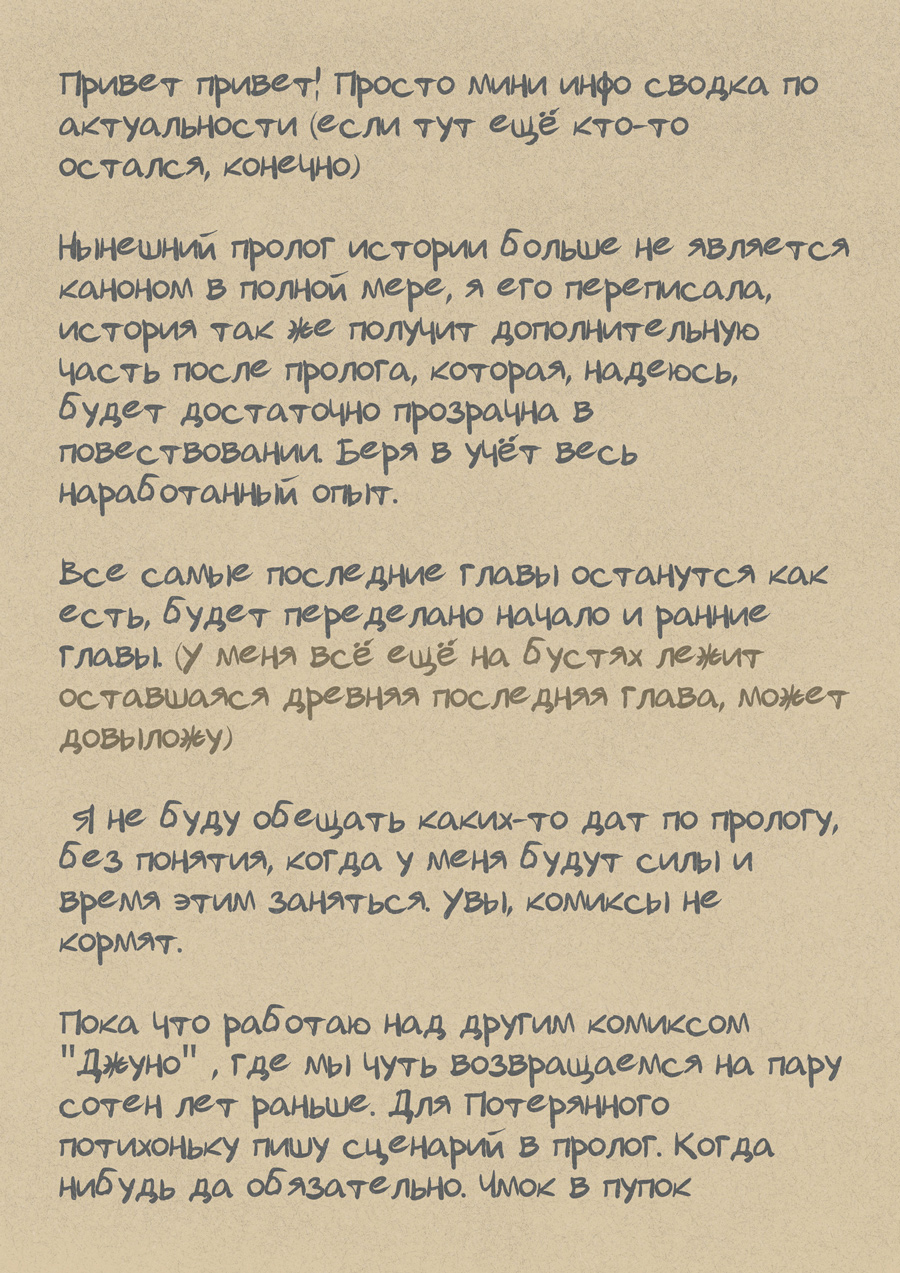 Привет привет! Просто мини инфо сводка по
актуальности (если тут ещё кто-то
остался, конечно)
Нынешний пролог истории больше не является
каноном в полной мере, я его переписала,
история так же получит дополнительную
часть после пролога, которая, надеюсь,
будет достаточно прозрачна в
повествовании. Беря в учёт весь
наработанный опыт.
Все самые последние главы останутся как
есть, будет переделано начало и ранние
главы. (У меня всё ещё на бустях лежит
оставшаяся древняя последняя глава, может
довыложу)
Я не буду обещать каких-то дат по прологу,
без понятия, когда у меня будут силы и
время этим заняться. Увы, комиксы не
кормят.
Пока что работаю над другим комиксом
"Джуно" , где мы чуть возвращаемся на пару
сотен лет раньше. Для Потерянного
потихоньку пишу сценарий в пролог. Когда
нибудь да обязательно. Чмок в пупок